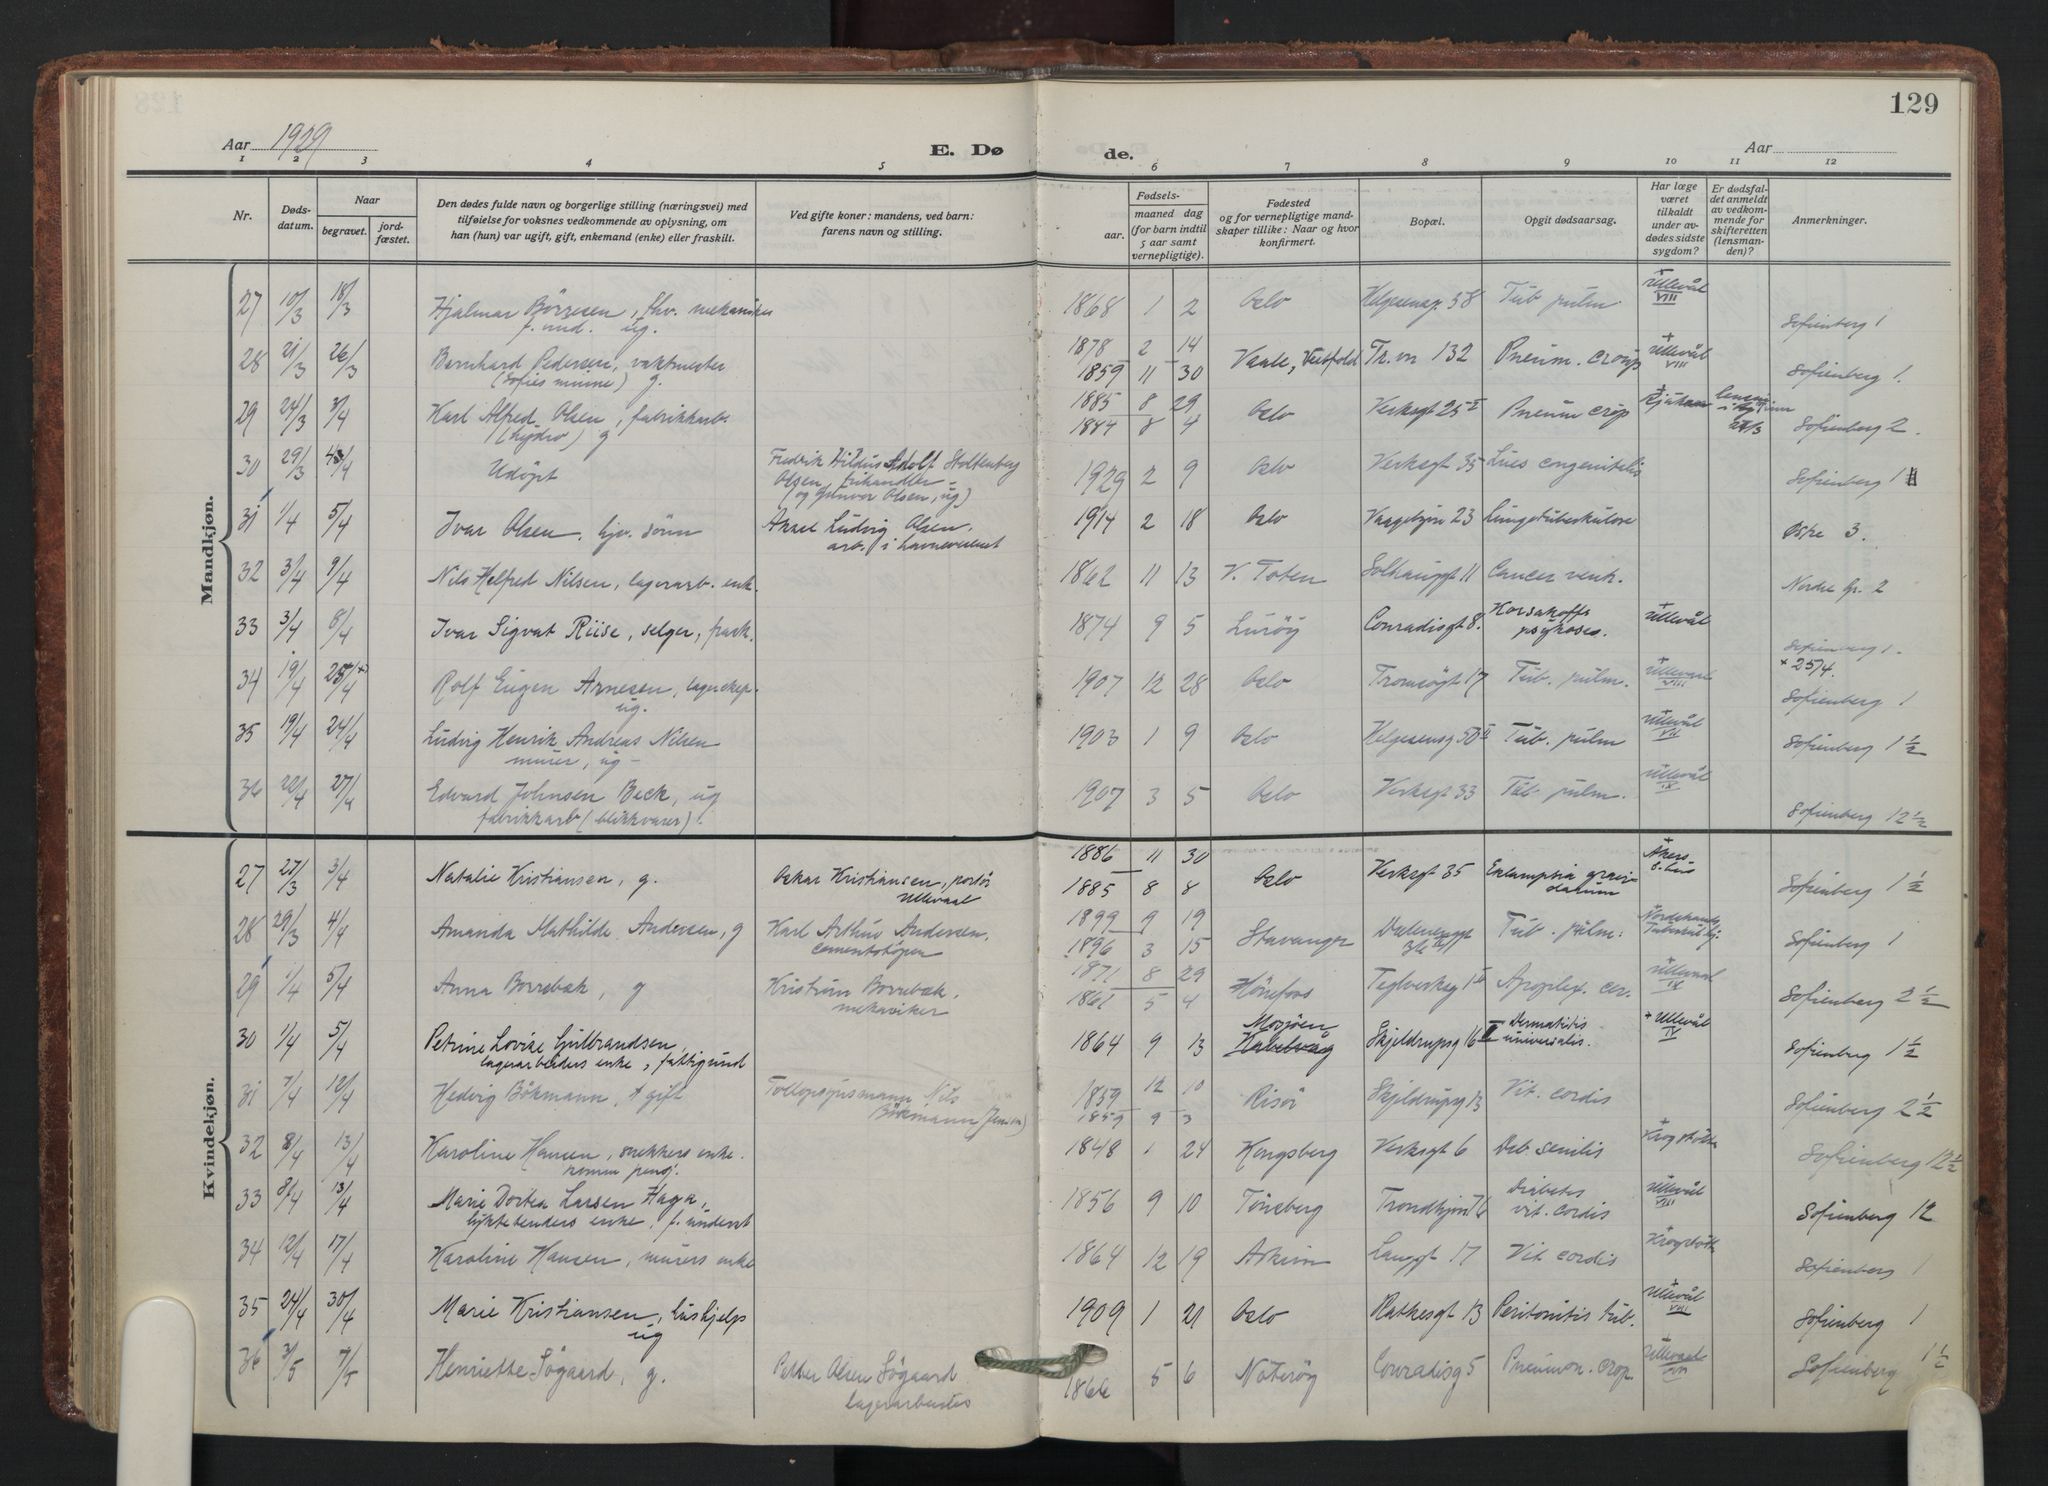 129
Aar 1929
E. Dø
de.
Aar
1 2 3 4 5 6 7 8 9 10 11 12
Nr.
Døds-
datum.
Naar
begravet.
jord-
fæstet.
Den dødes fulde navn og borgerlige stilling (næringsvei) med
tilføielse for voksnes vedkommende av oplysning, om
han (hun) var ugift, gift, enkemand (enke) eller fraskilt.
Ved gifte koner: mandens, ved barn:
farens navn og stilling.
Fødsels-
aar.
maaned dag
(for barn indtil
5 aar samt
vernepligtige).
Fødested
og for vernepligtige mand-
skaper tillike: Naar og hvor
konfirmert.
Bopæl.
Opgit dødsaarsag.
Har læge
været
tilkaldt
under av-
dødes sidste
sygdom?
Er dødsfal-
det anmeldt
av vedkom-
mende for
skifteretten
(lensman-
den)?
Anmerkninger.
Mandkjøn.
27 10/3 18/3 Hjalmar Börresen, fhv. mekaniker 1868 1 2 Oslo Helgesensg. 58 Tub. pulm. + Ullevål VIII Sofienberg 1
f. und. ug.
28 21/3 26/3 Bernhard Pedersen, vaktmester 1878 2 14
(Sofies minne) g. 1859 11 30 Vaale, Vestfold Tr.vn 132 Pneum. croup + Ullevål VIII Sofienberg 1.
29 24/3 3/4 Karl Alfred Olsen, fabrikkarb. 1885 8 29
(hydro) g 1884 8 4 Oslo Verksgt 25 II Pneum crop + Rjukan Sofienberg 2.
30 29/3 4/4 Udöpt Fredrik Hildus Adolf Stoltenberg 1929 2 9 Oslo Verksgt 35 Lues congenitalis Sofienberg 1
Olsen,
(og Gunvor Olsen, ug)
31 1/4 5/4 Ivar Olsen, hjv. sönn Aksel Ludvig Olsen, 1914 2 18 Oslo Vaagebyn 23 Lungetuberkulose Østre 3.
arb. i havnevesenet
32 3/4 9/4 Nils Helfred Nilsen, lagerarb. enk. 1862 11 13 V. Toten Solhauggt 11 Cancer ventr. Nordre Gr. 2
33 3/4 8/4 Ivar Sigvat Riise, selger, frask. 1874 9 5 Luröy Conradisgt 8. Korsakoffs + Ullevål Sofienberg 1.
psykoses.
34 19/4 25/4 +) Rolf Eugen Arnesen, lagereksp. 1907 12 28 Oslo Tromsögt 17 Tub. pulm. + Ullevaal VIII + 25/4.
ug. Sofienberg 1
35 19/4 24/4 Ludvig Henrik Andreas Nilsen 1903 1 9 Oslo Helgesensg 50 II Tub. pulm + Ullevål VII Sofienberg 1 1/2
murer, ug -
36 22/4 27/4 Edvard Johnsen Beck, ug 1907 3 5 Oslo Verksgt 33 Tub. pulm. + Ullevål IX Sofienberg 12 1/2
fabrikkarb (blikkvarer).
Kvindekjøn.
27 27/3 3/4 Natalie Kristiansen, g. Oskar Kristiansen, portör 1886 11 30
Ullevaal 1885 8 8 Oslo Verksgt 35 Eclampsia gravi- + Akers s.hus Sofienberg 1 1/2
darum
28 29/3 4/4 Amanda Mathilde Andersen, g Karl Arthur Andersen, 1899 9 19
cementstöper 1896 3 15 Stavanger Dælenenggt 36 Tub. pulm: Sofienberg 1
29 1/4 5/4 Anna Borrebæk, g Kristian Borrebæk, 1871 8 29
mekaniker 1861 5 4 Hönefoss Teglverksg 1 Apoplex. cer. + Ullevaal IX Sofienberg 2 1/2
30 1/4 5/4 Petrine Lovise Gulbrandsen, 1864 9 13 Mosjöen Skjeldrupsg 16 II Dermatitis + Ullevål IV Sofienberg 1 1/2
lagerarbeiders enke, fattigund universalis.
31 7/4 12/4 Hedvig Bökmann, gift Tollopsynsmann Nils 1859 12 10 Risör Skjeldrupsg 13 Vit. cordis Sofienberg 2 1/2
Bökmann (Jensen) 1859 9 3
32 8/4 13/4 Karoline Hansen, snekkers enke. 1848 1 24 Kongsberg Verksgt 6 Deb. senilis Krogstötten Sofienberg 12 1/2
komm. pensj.
33 8/4 13/4 Marie Dortea Larsen Haga, 1856 9 10 Tönsberg Trondhjem 76 Diabetes + Ullevål VIII Sofienberg 12
lyktetenders enke, f. underst vit. cordis
34 12/4 17/4 Karoline Hansen, murers enke 1864 12 19 Askim Langgt 17 Vit. cordis Krogstötten Sofienberg 1
35 24/4 30/4 Marie Kristiansen, hushjelp 1909 1 21 Oslo Rathkesgt 13 Peritonitis tub. + Ullevål VIII Sofienberg 1
ug
36 3/5 7/5 Henriette Sögaard, g. Petter Olsen Sögaard 1866 5 6 Nöteröy Conradisg 5 Pneumon. crop. + Ullevaal Sofienberg 1 1/2
lagerarbeider